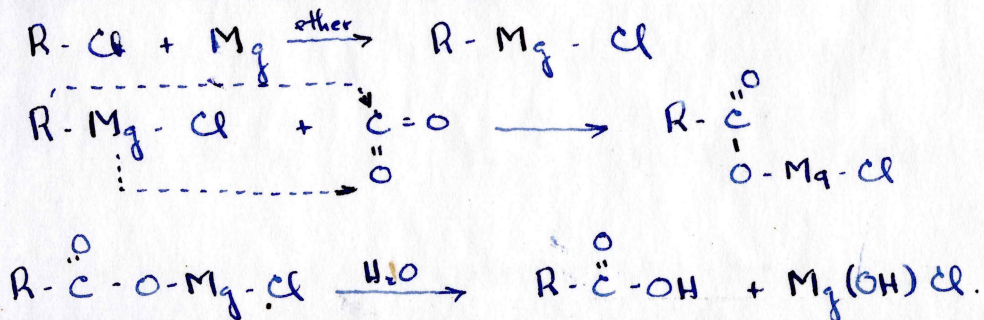 R - Cl + Mg ether→ R - Mg - Cl
R - Mg - Cl + C = O → R - C
=
O
=
O
-
O - Mg - Cl
R - C - O - Mg - Cl H₂O→ R - C - OH + Mg(OH)Cl.
=
O
=
O